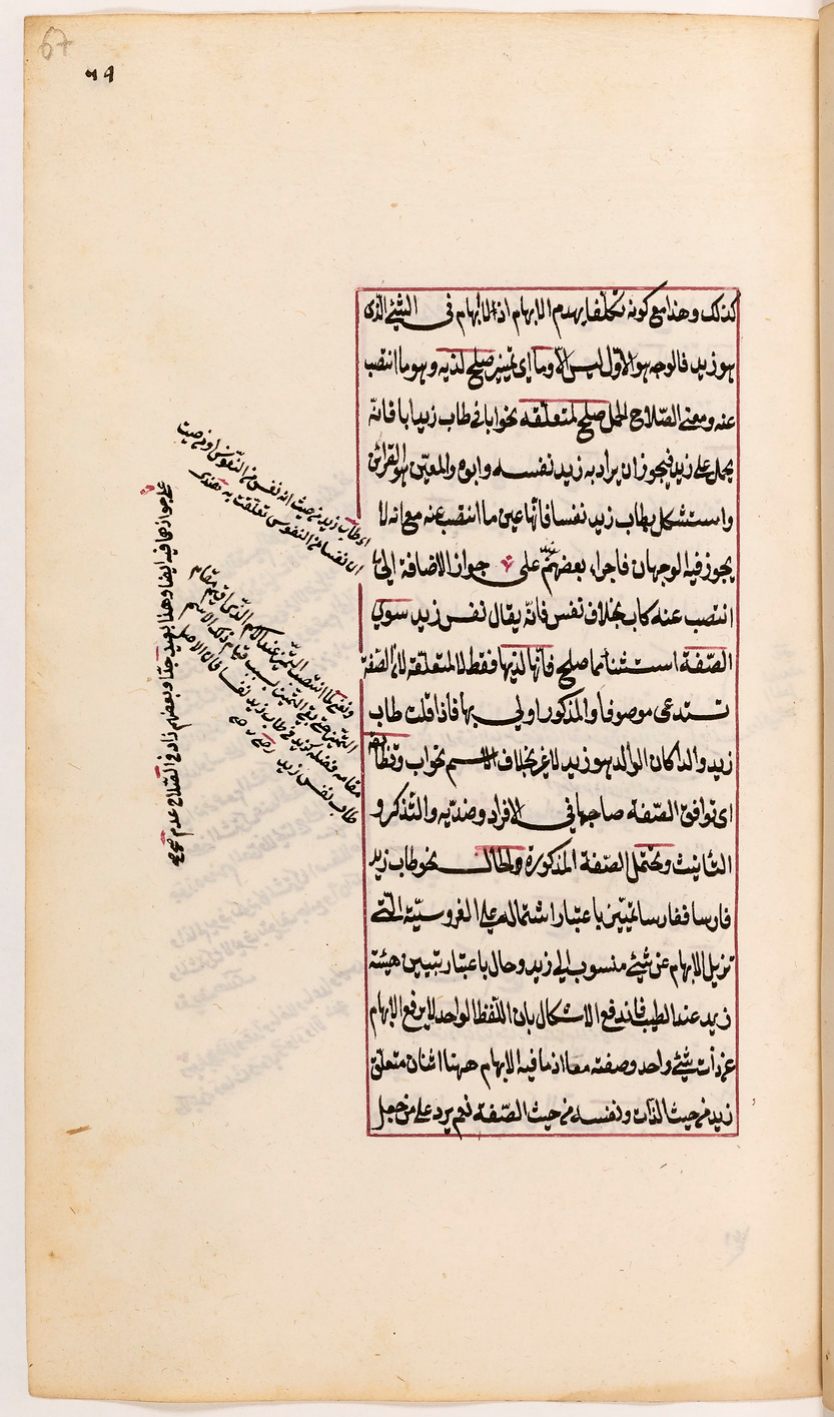 67
٥٩
كذلك وهذا مع كونه تكلفا يهدم الابهام اذ الابهام في الشئ الذى
هو زيد فالوجه هو الاول ليس الا وما اى تمييز صلح لذيه وهو ما انتصب
عنه ومعنى الصلاح الحمل صلح لمتعلقه نحو ابا في طاب زيد ابا فانه
يحمل على زيد فيجوز ان يراد به زيد نفسه وابوه والمعين هو القرائن
واستشكل بطاب زيد نفسا فانها عين ما انتصب عنه مع انه لا
يجوز فيه الوجهان فاجرا بعضهم على جواز الاضافة الى ما
انتصب عنه كاب بخلاف نفس فانه يقال نفس زيد سوى
الصفة استثنا مما صلح فانها لذيها فقط لا لمتعلقه لان الصفة
تستدعى موصوفا والمذكور اولى بها فاذا قلت طاب
زيد والدا كان الوالد هو زيد لا غير بخلاف الاسم نحو اب وتطابقه
اى توافق الصفة صاحبها في الافراد وضديه والتذكر و
التانيث وتحتمل الصفة المذكورة والحال نحو طاب زيد
فارسا ففارسا تمييز باعتبار اشتماله على الفروسية التى
تزيل الابهام عن شئ منسوب الى زيد وحال باعتبار تبيين هيئة
زيد عند الطيب فاندفع الاشكال بان اللفظ الواحد لا يرفع الابهام
عن ذات شئ واحد وصفته معا اذ ما فيه الابهام ههنا اثنان متعلق
زيد من حيث الذات ونفسه من حيث الصفة نعم يرد على من جعل
اى طاب زيد من حيث انه نفس من النفوس او من حيث
ان نفسا من النفوس تعلقت به هندى
التمييز حتى يقع التمييز بسبب قيام ذلك الاسم
مقامه فضله كزيد في طاب زيد نفسا فان الاصل
طاب نفس زيد
على جوازهما فيه ايضا وهذا بعيد جدا وبعضهم زاد في الصلاح عدم